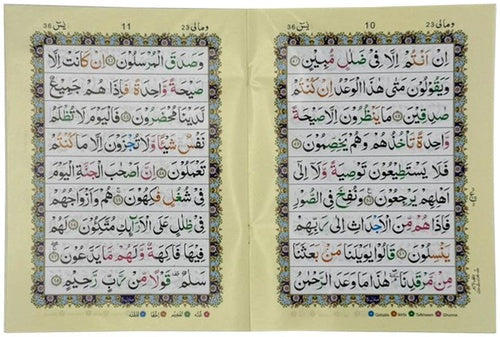 ومالی ٢٣
10
یٰسٓ 36
اِنْ اَنْتُمْ اِلَّا فِیْ ضَلٰلٍ مُّبِیْنٍ
وَیَقُوْلُوْنَ مَتٰی هٰذَا الْوَعْدُ اِنْ كُنْتُمْ
صٰدِقِیْنَ مَا یَنْظُرُوْنَ اِلَّا صَیْحَةً
وَّاحِدَةً تَاْخُذُهُمْ وَهُمْ یَخِصِّمُوْنَ
فَلَا یَسْتَطِیْعُوْنَ تَوْصِیَةً وَّلَاۤ اِلٰۤی
اَهْلِهِمْ یَرْجِعُوْنَ وَنُفِخَ فِی الصُّوْرِ
فَاِذَا هُمْ مِّنَ الْاَجْدَاثِ اِلٰی رَبِّهِمْ
یَنْسِلُوْنَ قَالُوْا یٰوَیْلَنَا مَنْۢ بَعَثَنَا
مِنْ مَّرْقَدِنَا هٰذَا مَا وَعَدَ الرَّحْمٰنُ
Qalqala Ikhfa Tafkheem Ghunna
ومالی ٢٣
11
یٰسٓ 36
وَصَدَقَ الْمُرْسَلُوْنَ اِنْ كَانَتْ اِلَّا
صَیْحَةً وَّاحِدَةً فَاِذَا هُمْ جَمِیْعٌ
لَّدَیْنَا مُحْضَرُوْنَ فَالْیَوْمَ لَا تُظْلَمُ
نَفْسٌ شَیْـًٔا وَّلَا تُجْزَوْنَ اِلَّا مَا كُنْتُمْ
تَعْمَلُوْنَ اِنَّ اَصْحٰبَ الْجَنَّةِ الْیَوْمَ
فِیْ شُغُلٍ فٰكِهُوْنَ هُمْ وَاَزْوَاجُهُمْ
فِیْ ظِلٰلٍ عَلَی الْاَرَآىِٕكِ مُتَّكِـُٔوْنَ لَهُمْ
فِیْهَا فَاكِهَةٌ وَّلَهُمْ مَّا یَدَّعُوْنَ
سَلٰمٌ قَوْلًا مِّنْ رَّبٍّ رَّحِیْمٍ